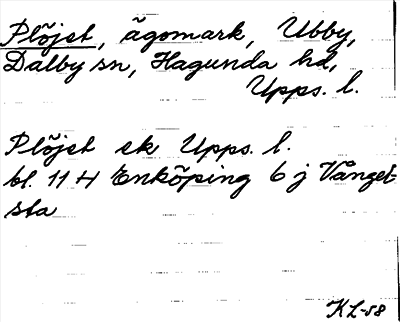 Plöjet, ägomark, Ubby,
Dalby sn, Hagunda hd,
Upps. l.
Plöjet ek Upps. l.
bl. 11 H Enköping 6 j Vånge-
sta
KL-58